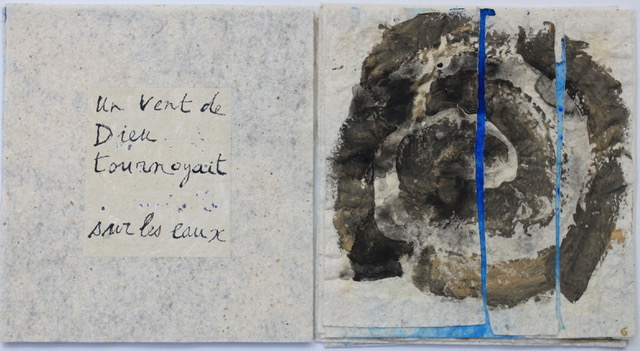 un vent de
Dieu
tournoyait
sur les eaux
6